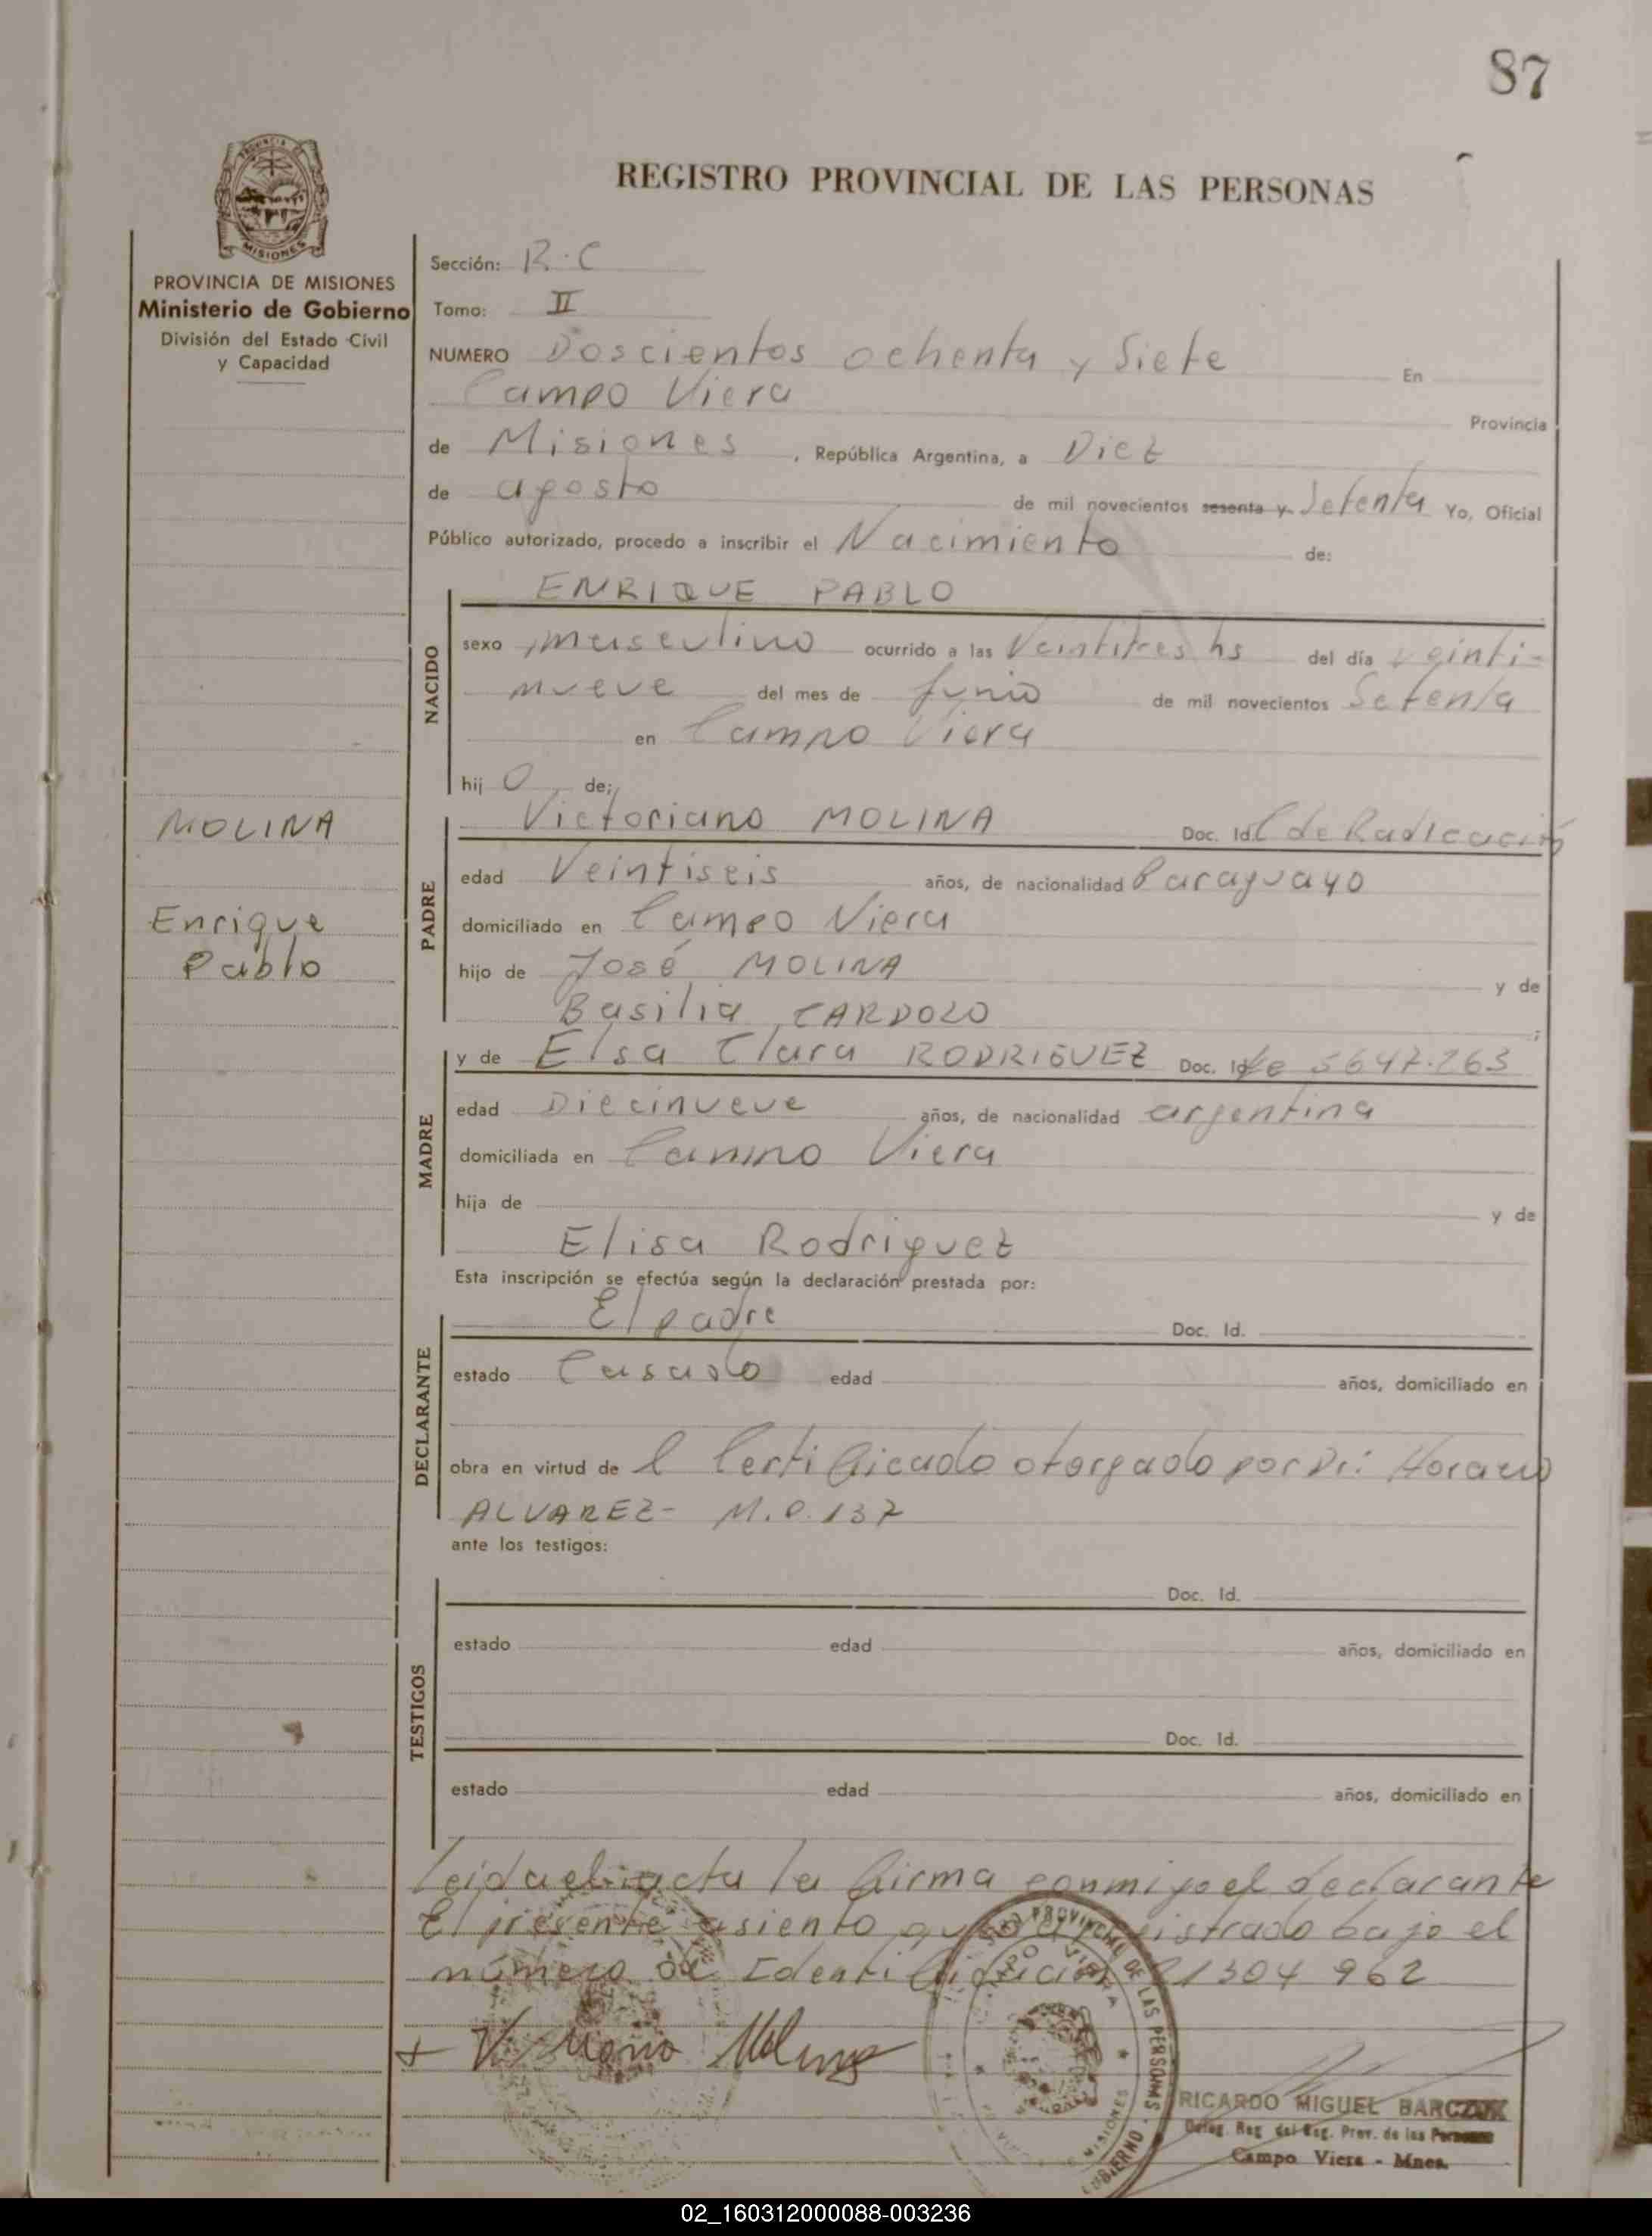 87
REGISTRO PROVINCIAL DE LAS PERSONAS
MISIONES
PROVINCIA DE MISIONES
Ministerio de Gobierno
División del Estado Civil
y Capacidad
MOLINA
Enrique
Pablo
Sección: R.C
Tomo: II
NUMERO Doscientos ochenta y Siete En
Campo Viera Provincia
de Misiones, República Argentina, a Diez
de agosto de mil novecientos sesenta y Setenta Yo, Oficial
Público autorizado, procedo a inscribir el Nacimiento de:
NACIDO
ENRIQUE PABLO
sexo masculino ocurrido a las Veintitres hs del día veinti-
nueve del mes de junio de mil novecientos Setenta
en Campo Viera
hij o de;
PADRE
Victoriano MOLINA Doc. Id. C de Radicación
edad Veintiseis años, de nacionalidad Paraguayo
domiciliado en Campo Viera
hijo de José MOLINA y de
Basilia CARDOZO ;
MADRE
y de Elsa Clara RODRIGUEZ Doc. Id. 5647.263
edad Diecinueve años, de nacionalidad argentina
domiciliada en Campo Viera
hija de y de
Elisa Rodriguez
Esta inscripción se efectúa según la declaración prestada por:
DECLARANTE
El padre Doc. Id.
estado Casado edad años, domiciliado en
obra en virtud de l Certificado otorgado por Dr: Horacio
ALVAREZ- M.P. 137
ante los testigos:
TESTIGOS
Doc. Id.
estado edad años, domiciliado en
Doc. Id.
estado edad años, domiciliado en
Leida el acta la firma conmigo el declarante
El presente asiento registrado bajo el
número de Identificación 21304 962
+ Molina
PROVINCIAL DE LAS PERSONAS
MISIONES
RICARDO MIGUEL BARCZUK
Deleg. Reg. del Reg. Prov. de las Personas
Campo Viera - Mnes.
02_160312000088-003236